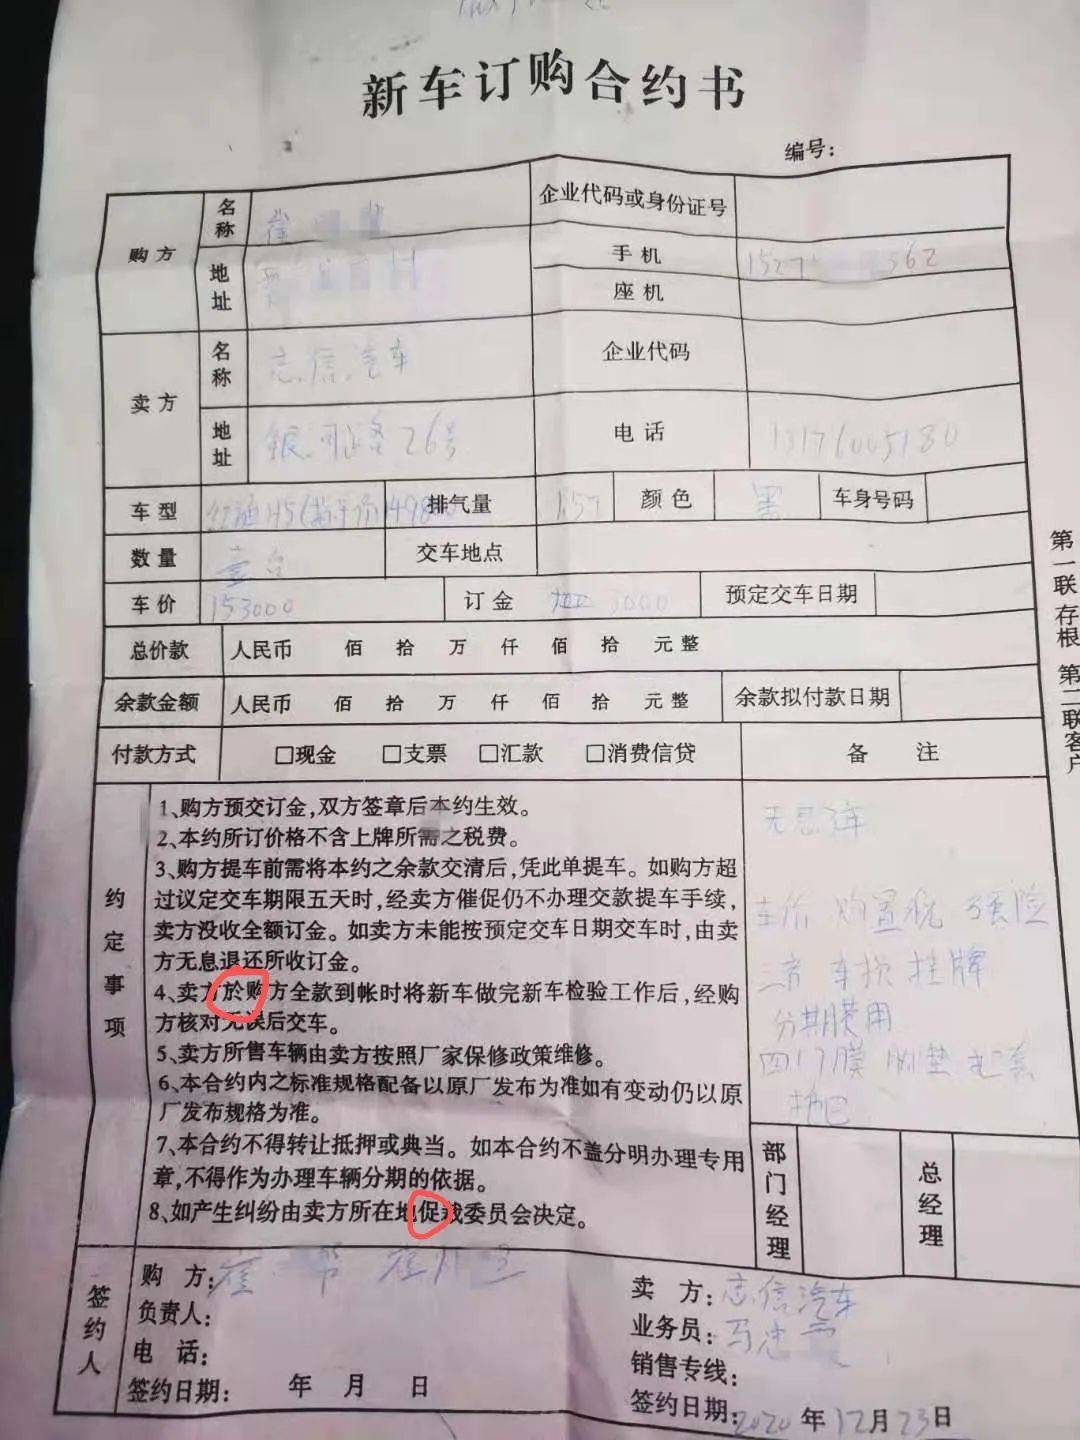 新车订购合约书
编号：
购方
名称
崔
企业代码或身份证号
地址
手机
152 362
座机
卖方
名称
志信汽车
企业代码
地址
银河路26号
电话
13176005180
车型
排气量
颜色
黑
车身号码
数量
壹台
交车地点
车价
153000
订金
3000
预定交车日期
总价款
人民币 佰 拾 万 仟 佰 拾 元整
余款金额
人民币 佰 拾 万 仟 佰 拾 元整
余款拟付款日期
付款方式
□现金 □支票 □汇款 □消费信贷
备注
约定事项
1、购方预交订金，双方签章后本约生效。
2、本约所订价格不含上牌所需之税费。
3、购方提车前需将本约之余款交清后，凭此单提车。如购方超
过议定交车期限五天时，经卖方催促仍不办理交款提车手续，
卖方没收全额订金。如卖方未能按预定交车日期交车时，由卖
方无息退还所收订金。
4、卖方於购方全款到帐时将新车做完新车检验工作后，经购
方核对无误后交车。
5、卖方所售车辆由卖方按照厂家保修政策维修。
6、本合约内之标准规格配备以原厂发布为准如有变动仍以原
厂发布规格为准。
7、本合约不得转让抵押或典当。如本合约不盖分明办理专用
章，不得作为办理车辆分期的依据。
8、如产生纠纷由卖方所在地促裁委员会决定。
车价 购置税 强险
三者 车损 挂牌
分期费用
四门膜 脚垫
部门经理
总经理
签约人
购方：崔
负责人：
电话：
签约日期： 年 月 日
卖方：志信汽车
业务员：马忠
销售专线：
签约日期：2020年12月23日
第一联存根 第二联客户